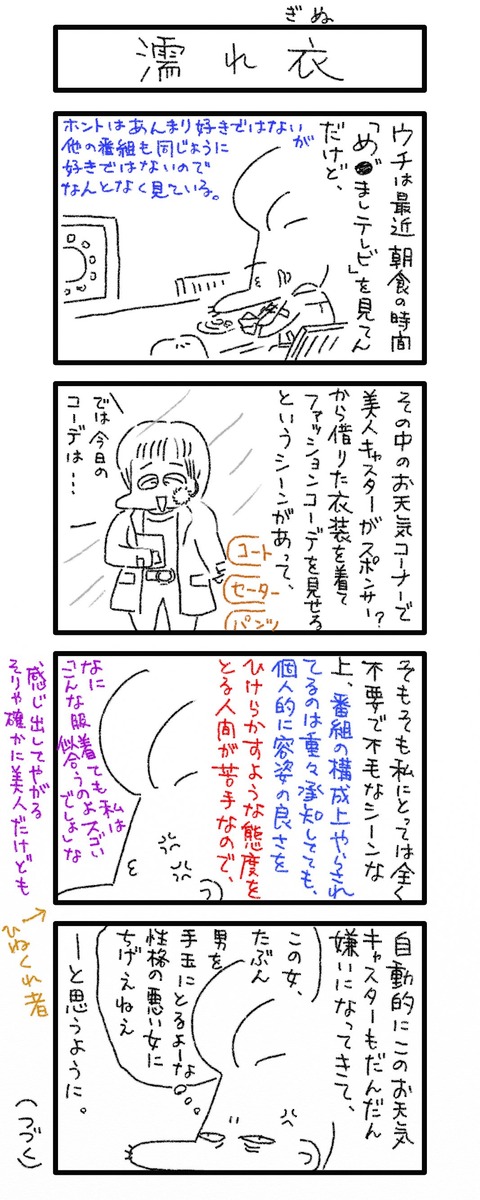 ぎぬ
濡れ衣
ウチは最近朝食の時間
「め●ましテレビ」を見てん
だけど、
ホントはあんまり好きではないが
他の番組も同じように
好きではないので
なんとなく見ている。
その中のお天気コーナーで
美人キャスターがスポンサー?
から借りた衣装を着て
ファッションコーデを見せる
というシーンがあって、
では今日の
コーデは…
コート
セーター
パンツ
そもそも私にとっては全く
不要で不毛なシーンな
上、番組の構成上やらされ
てるのは重々承知してても、
個人的に容姿の良さを
ひけらかすような態度を
とる人間が苦手なので、
なに
「こんな服着ても私は
似合うのよスゴい
でしょ」な
感じ出してやがる
そりゃ確かに美人だけども
→
ひねくれ者
自動的にこのお天気
キャスターもだんだん
嫌いになってきて、
この女、
たぶん
男を
手玉にとるよーな
性格の悪い女に
ちげえねえ
ーと思うように。
(つづく)